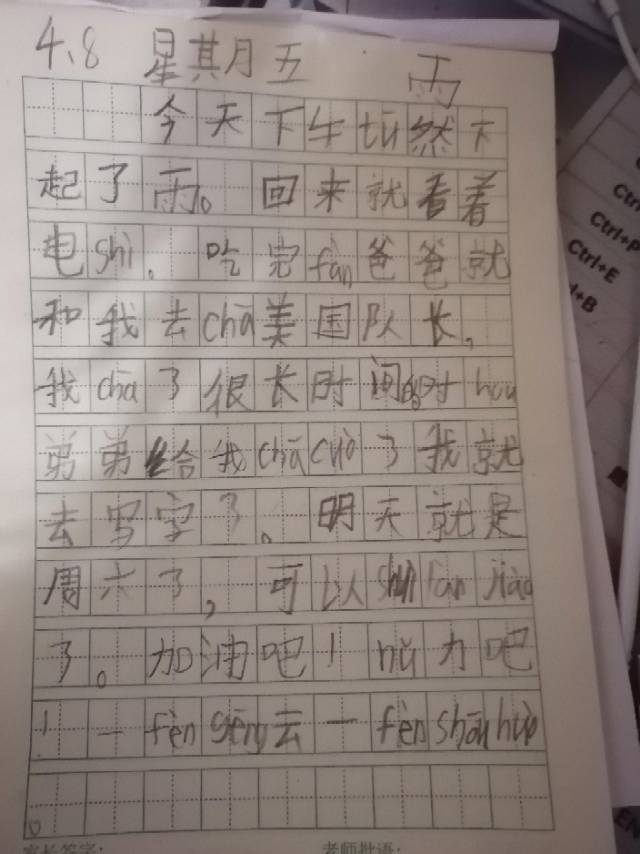 4.8 星其月五 雨
今天下午tū然下
起了雨。回来就看着
电shì. 吃完fàn爸爸就
和我去chā美国队长,
我chā了很长时间的时hou
弟弟给我chācuò了我就
去写字了。明天就是
周六了,可以shuì lan jiào
了。加油吧!nǔ力吧
!一fèn gēng云一fèn shōu huò
。
家长签字: 老师批语:
Ctrl+P
Ctrl+E
+B